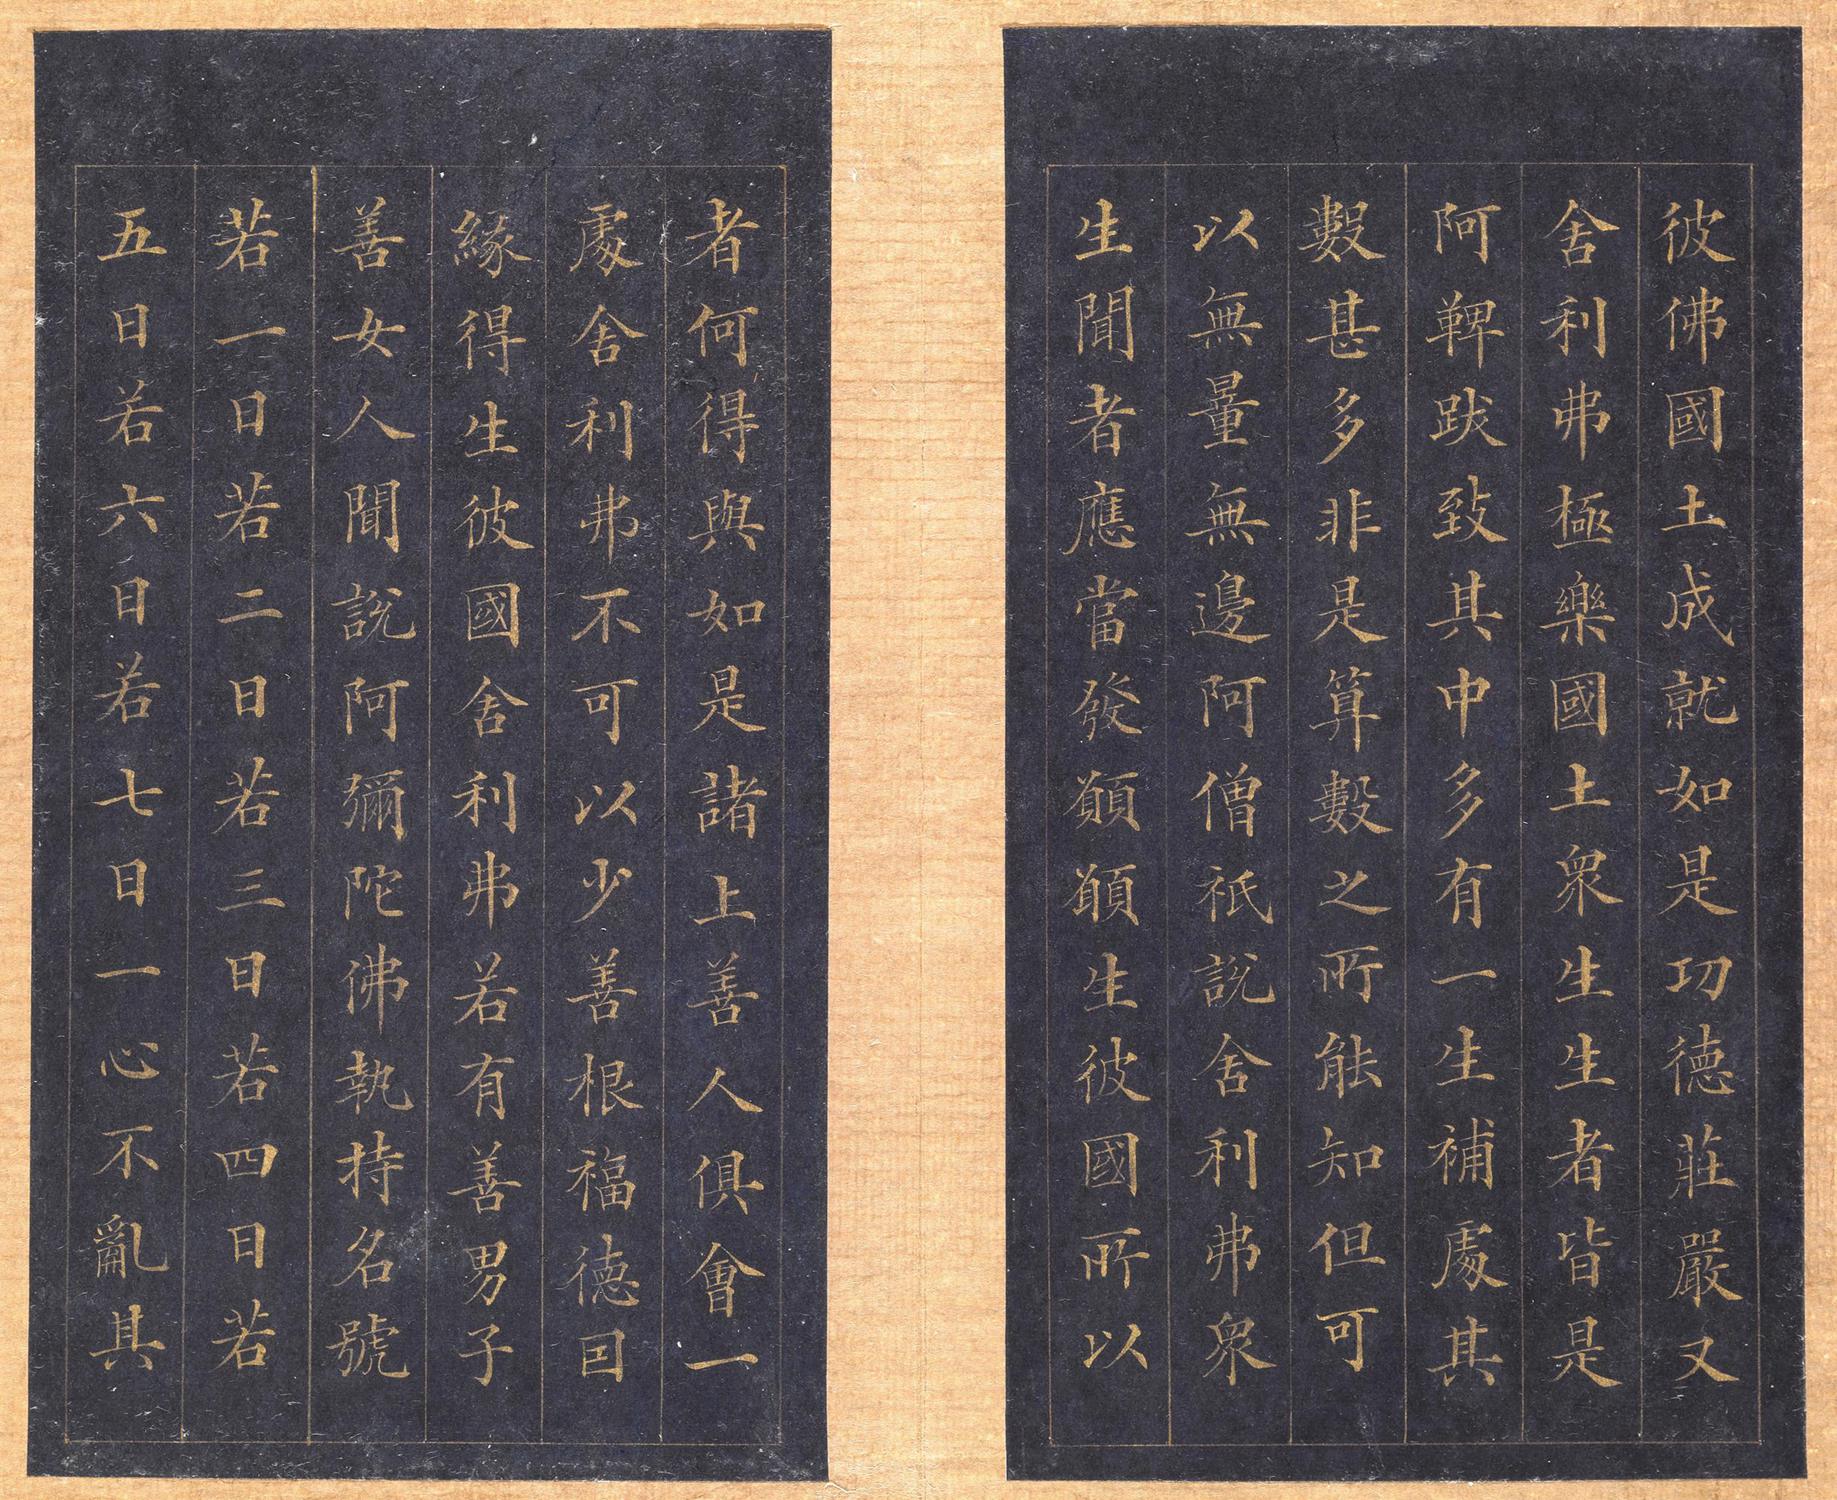 彼佛國土成就如是功德莊嚴又
舍利弗極樂國土眾生生者皆是
阿鞞跋致其中多有一生補處其
數甚多非是算數之所能知但可
以無量無邊阿僧祇說舍利弗眾
生聞者應當發願願生彼國所以
者何得與如是諸上善人俱會一
處舍利弗不可以少善根福德因
緣得生彼國舍利弗若有善男子
善女人聞說阿彌陀佛執持名號
若一日若二日若三日若四日若
五日若六日若七日一心不亂其